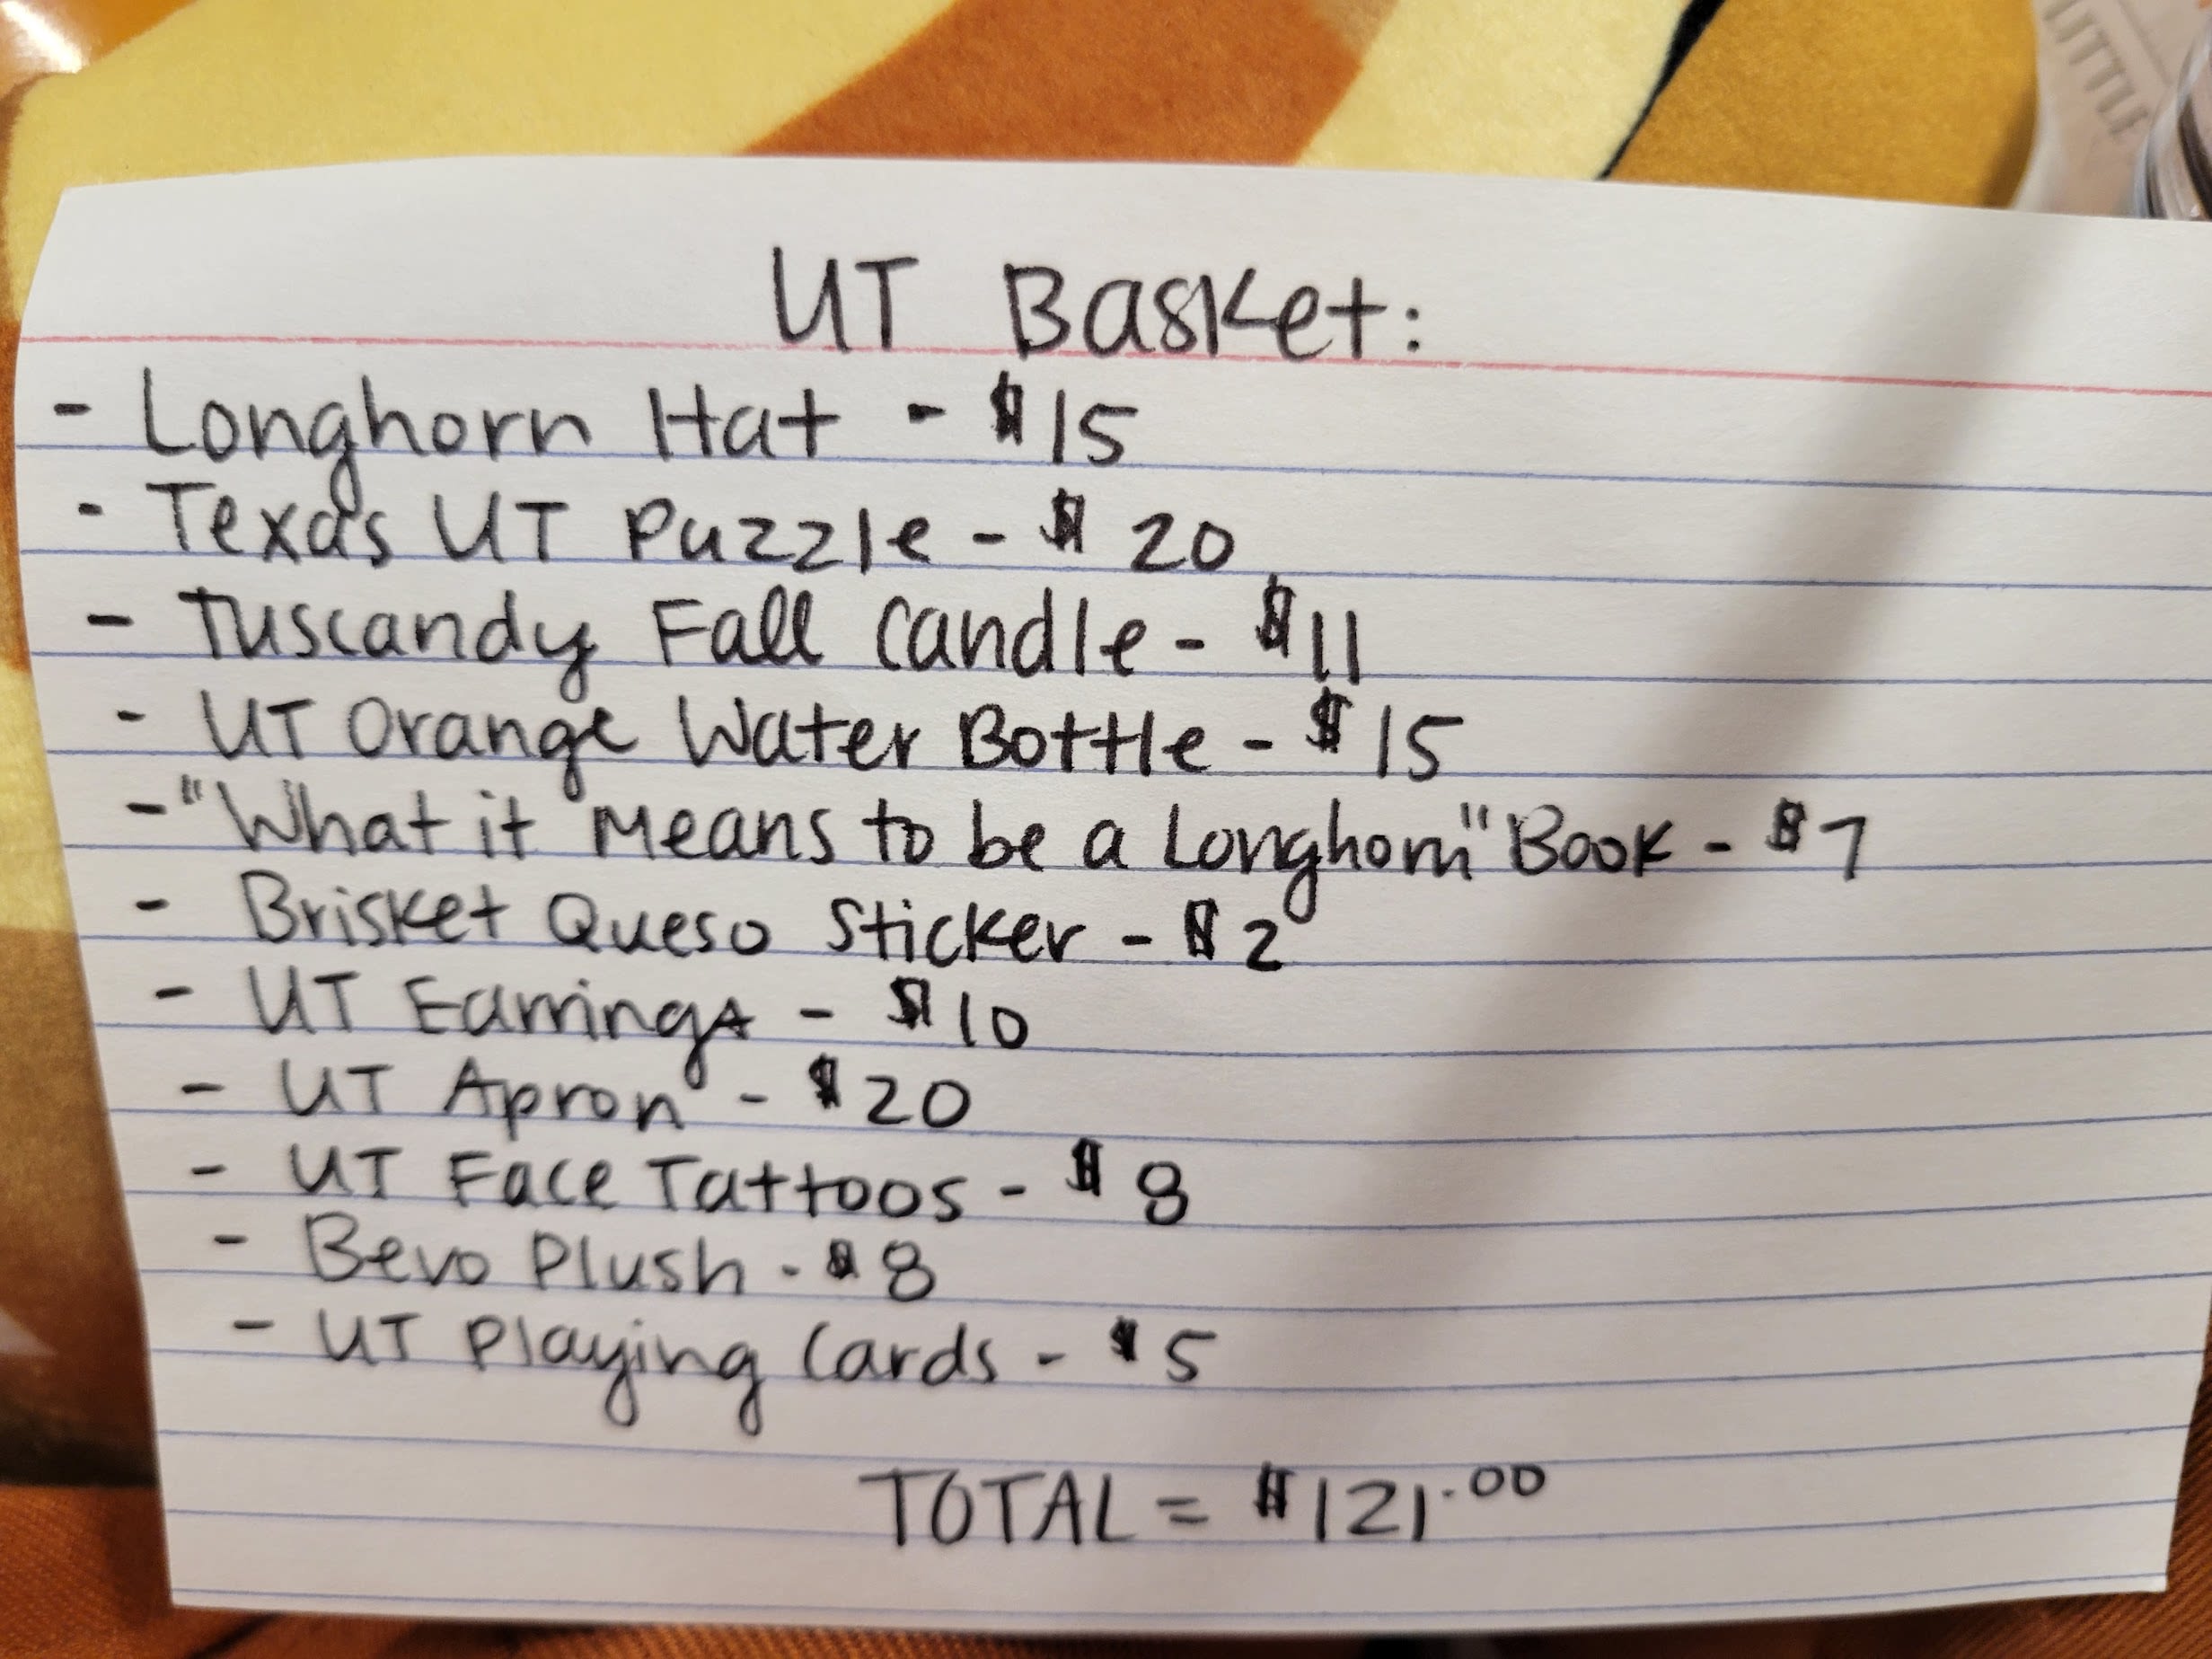 UT Basket:
- Longhorn Hat - $15
- Texas UT Puzzle - $20
- Tuscandy Fall Candle - $11
- UT Orange Water Bottle - $15
- "What it Means to be a Longhorn" Book - $7
- Brisket Queso Sticker - $2
- UT Earrings - $10
- UT Apron - $20
- UT Face Tattoos - $8
- Bevo Plush - $8
- UT Playing Cards - $5
TOTAL = $121.00
LITTLE